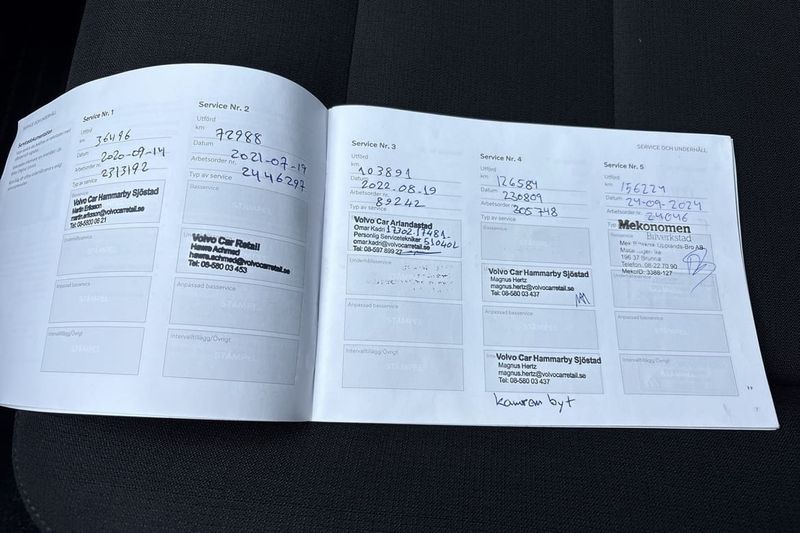 SERVICE OCH UNDERHÅLL
Service Nr. 1
Utförd
km 36496
Datum 2020-09-14
Arbetsorder nr. 2313192
Typ av service
Volvo Car Hammarby Sjöstad
Martin Eriksson
martin.eriksson@volvocarretail.se
Tel: 08-5800 0821
STÄMPEL
Intervalltillägg/Övrigt
STÄMPEL
Service Nr. 2
Utförd
km 72988
Datum 2021-07-19
Arbetsorder nr. 2446297
Typ av service
Basservice
Volvo Car Retail
Hawre Achmed
hawre.achmed@volvocarretail.se
Tel: 08-580 03 453
Anpassad basservice
Intervalltillägg/Övrigt
STÄMPEL
Service Nr. 3
Utförd
km 103891
Datum 2022-08-19
Arbetsorder nr. 89242
Typ av service
Volvo Car Arlandastad
Omar Kadri
Personlig Servicetekniker
omar.kadri@volvocarretail.se
Anpassad basservice
Intervalltillägg/Övrigt
Service Nr. 4
Utförd
km 126584
Datum 230809
Arbetsorder nr. 305748
Typ av service
Volvo Car Hammarby Sjöstad
Magnus Hertz
magnus.hertz@volvocarretail.se
Tel: 08-580 03 437
Anpassad basservice
Volvo Car Hammarby Sjöstad
Magnus Hertz
magnus.hertz@volvocarretail.se
Tel: 08-580 03 437
kamrem byt
SERVICE OCH UNDERHÅLL
Service Nr. 5
Utförd
km 156221
Datum 24-09-2024
Arbetsorder nr. 24046
Mekonomen
Bilverkstad
196 37 Brunna
Telefon: 08-22 70 90
MekoID: 3388-127
Anpassad basservice
Intervalltillägg/Övrigt